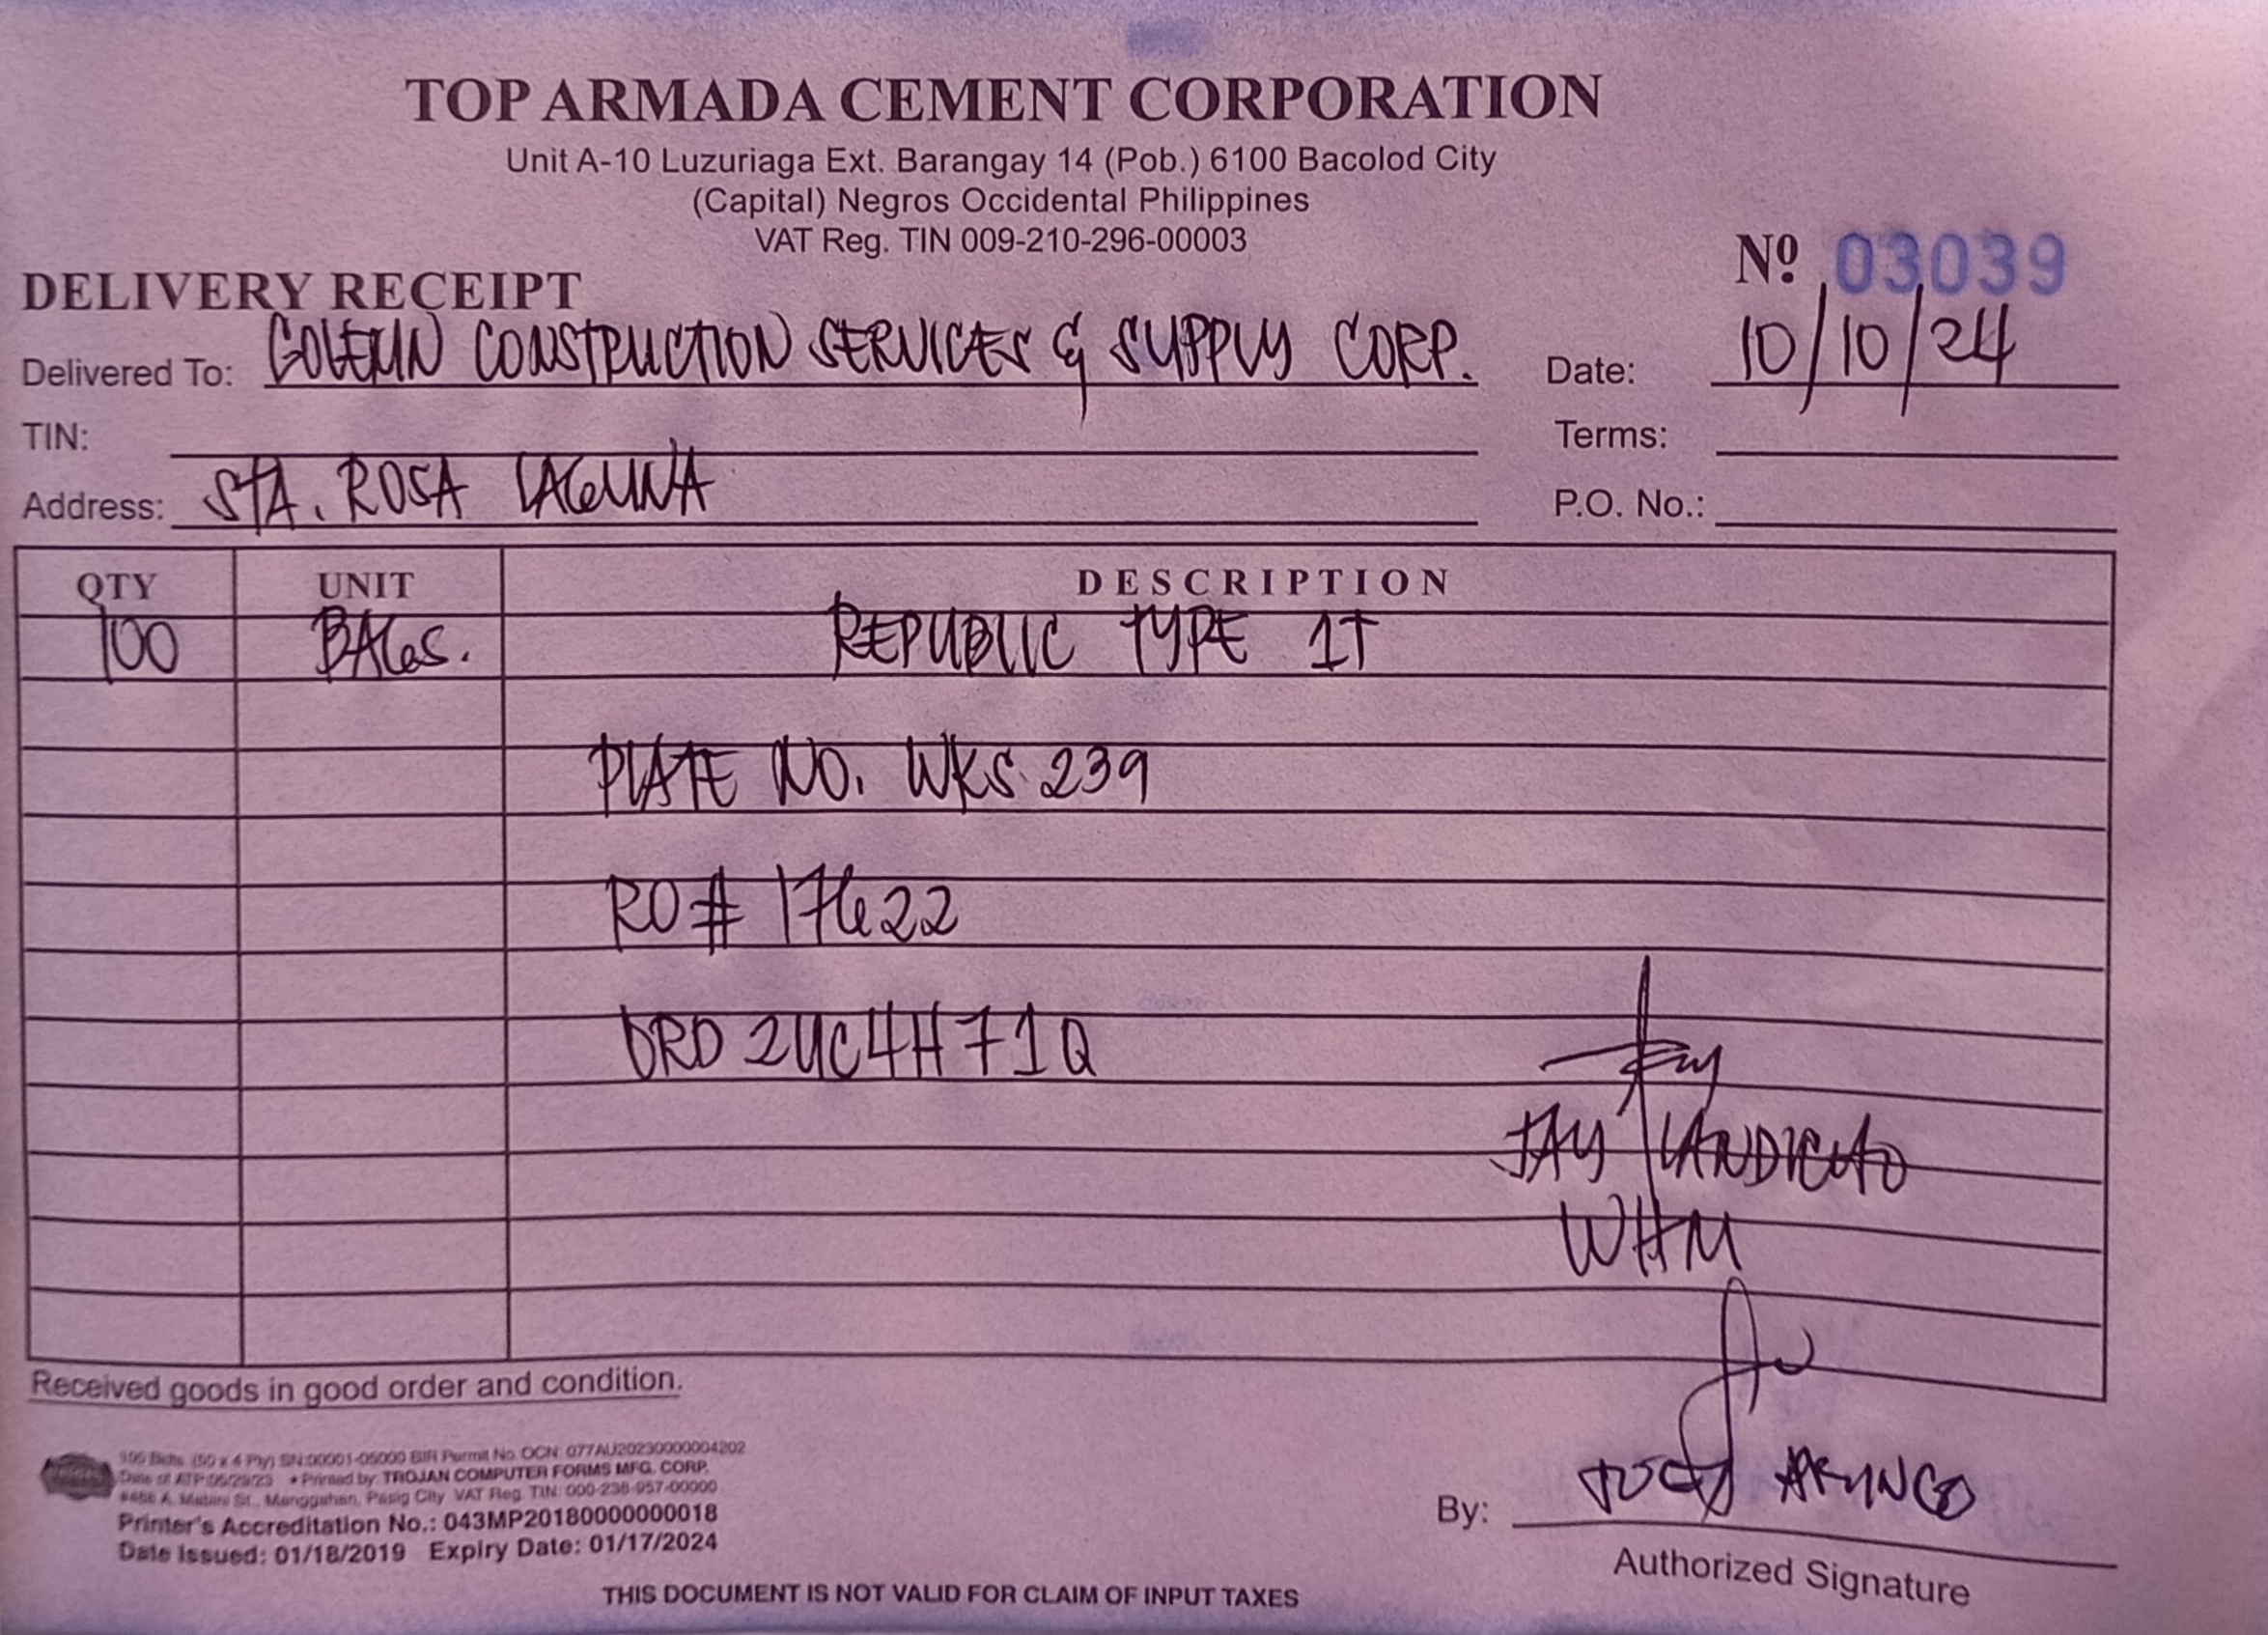 TOP ARMADA CEMENT CORPORATION
Unit A-10 Luzuriaga Ext. Barangay 14 (Pob.) 6100 Bacolod City
(Capital) Negros Occidental Philippines
VAT Reg. TIN 009-210-296-00003
Nº 03039
DELIVERY RECEIPT
Delivered To: CONSTRUCTION SERVICES & SUPPLY CORP. Date: 10/10/24
TIN: Terms:
Address: STA. ROSA LAGUNA P.O. No.:
QTY UNIT DESCRIPTION
100 BAGS. REPUBLIC TYPE 1T
PLATE NO. WKS 239
RO# 17622
DRD 2UC4H71Q
JAY LANDICHO
WHM
Received goods in good order and condition.
100 Bklts. (50 x 4 Ply) SN:00001-05000 BIR Permit No. OCN: 077AU20230000004202
Date of ATP:06/29/23 • Printed by: TROJAN COMPUTER FORMS MFG. CORP.
A. Mabini St., Manggahan, Pasig City VAT Reg. TIN: 000-238-957-00000
Printer's Accreditation No.: 043MP20180000000018
Date Issued: 01/18/2019 Expiry Date: 01/17/2024
By:
Authorized Signature
THIS DOCUMENT IS NOT VALID FOR CLAIM OF INPUT TAXES